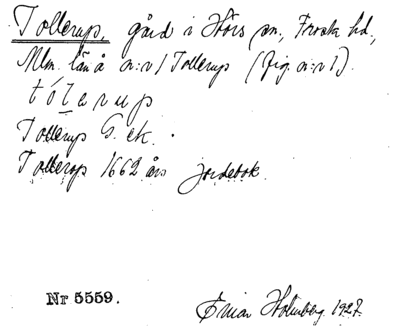 Tollerup, gård i Hörs sn, Frosta hd.,
Mlm. län å n:r 1 Tollerup (fig. n:r 1).
tólerup
Tollerup G. ek.
Tollerop 1662 års jordebok.
Nr 5559.
Einar Holmberg 1927.